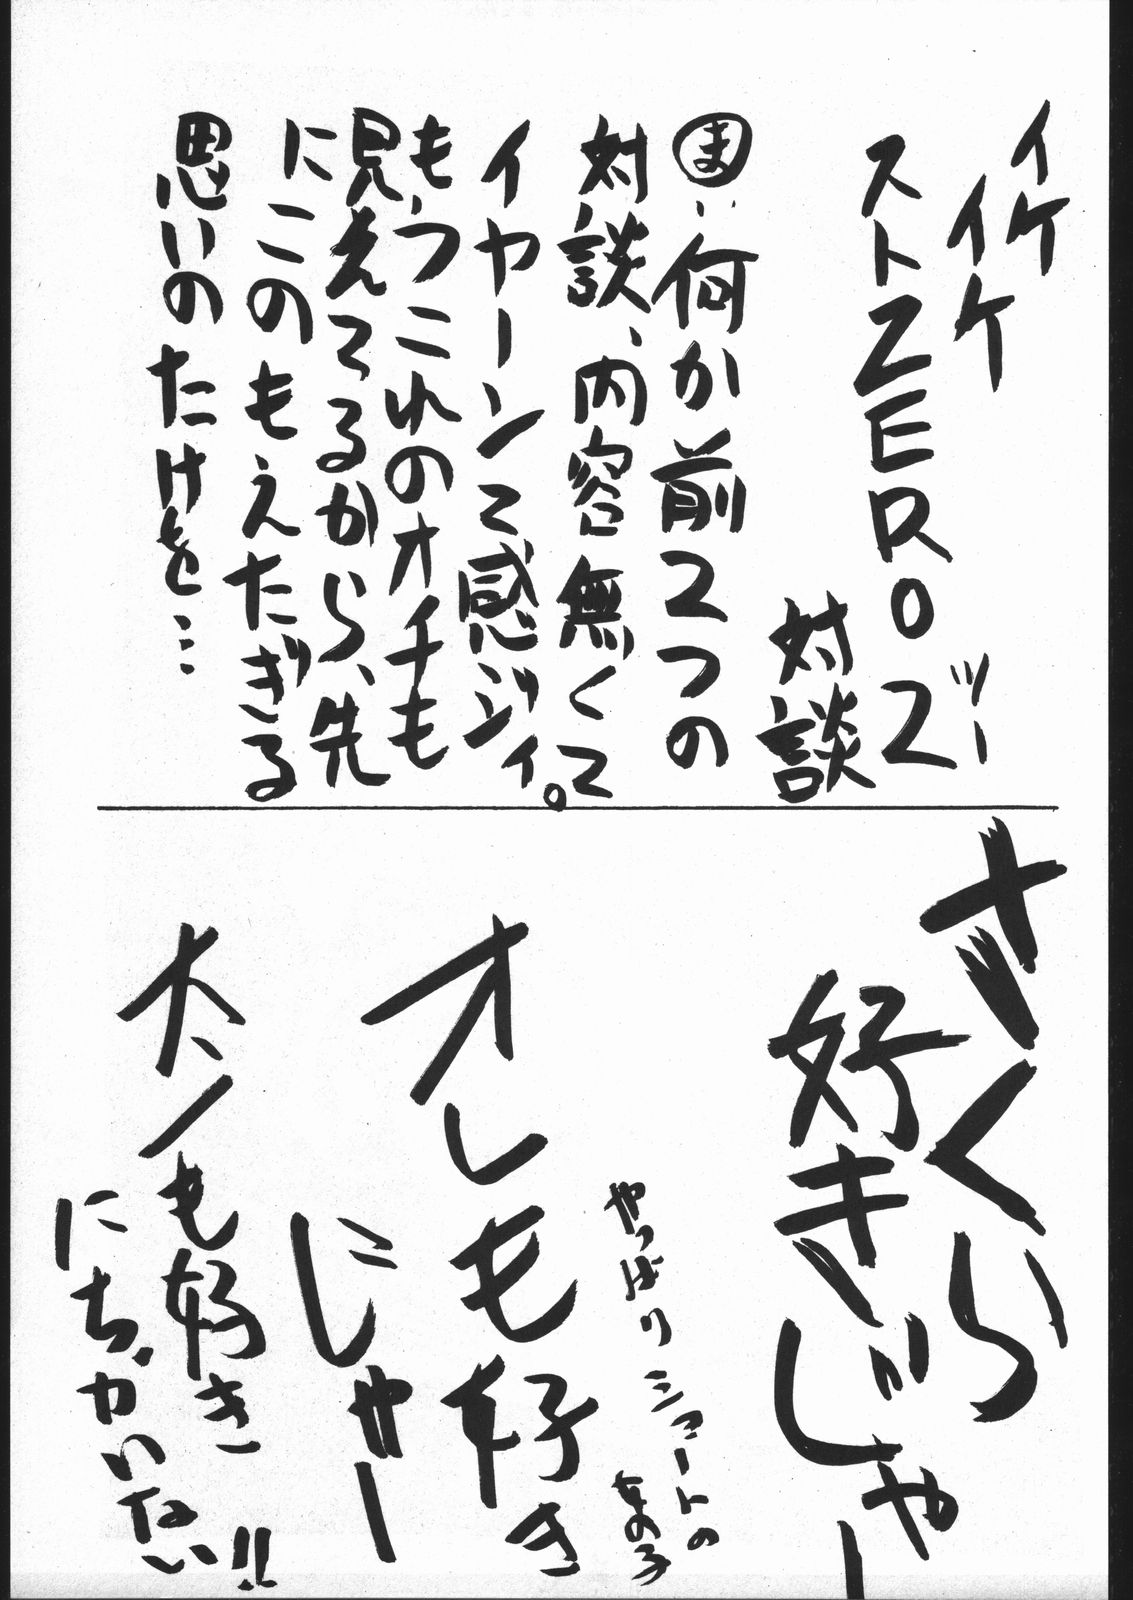 イケイケ
ストZERO2
ツー
対談
ま:何か前2つの
対談、内容無くて
イヤーンて感ジィ。
もうこれのオチも
見えてるから、先
にこのもえたぎる
思いのたけを…
さくら
好きじゃー
やっぱりショートの
女の子
オレも好き
にゃー
大ノも好き
にちがいない!!